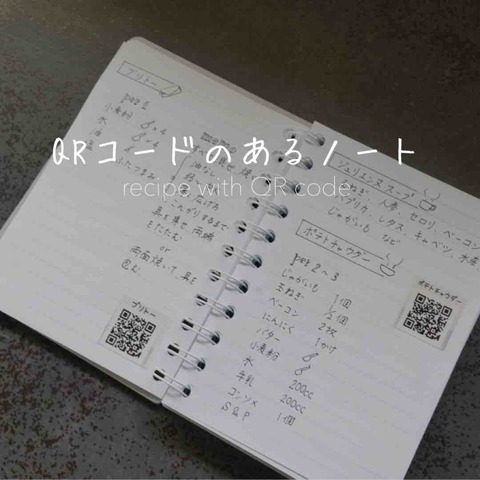 QRコードのあるノート
recipe with QR code
ブリトー
per 2
小麦粉
水
油
塩
両面焼いて、具を
包む
or
ブリトー
ジュリエンヌスープ
玉ねぎ、人参、セロリ、ベーコン
パプリカ、レタス、キャベツ、水菜
じゃがいも など
ポテトチャウダー
per 2~3
じゃがいも 1個
玉ねぎ 1/2個
ベーコン 2枚
にんにく 1かけ
バター
小麦粉
水 200cc
牛乳 200cc
コンソメ 1個
S&P
ポテトチャウダー